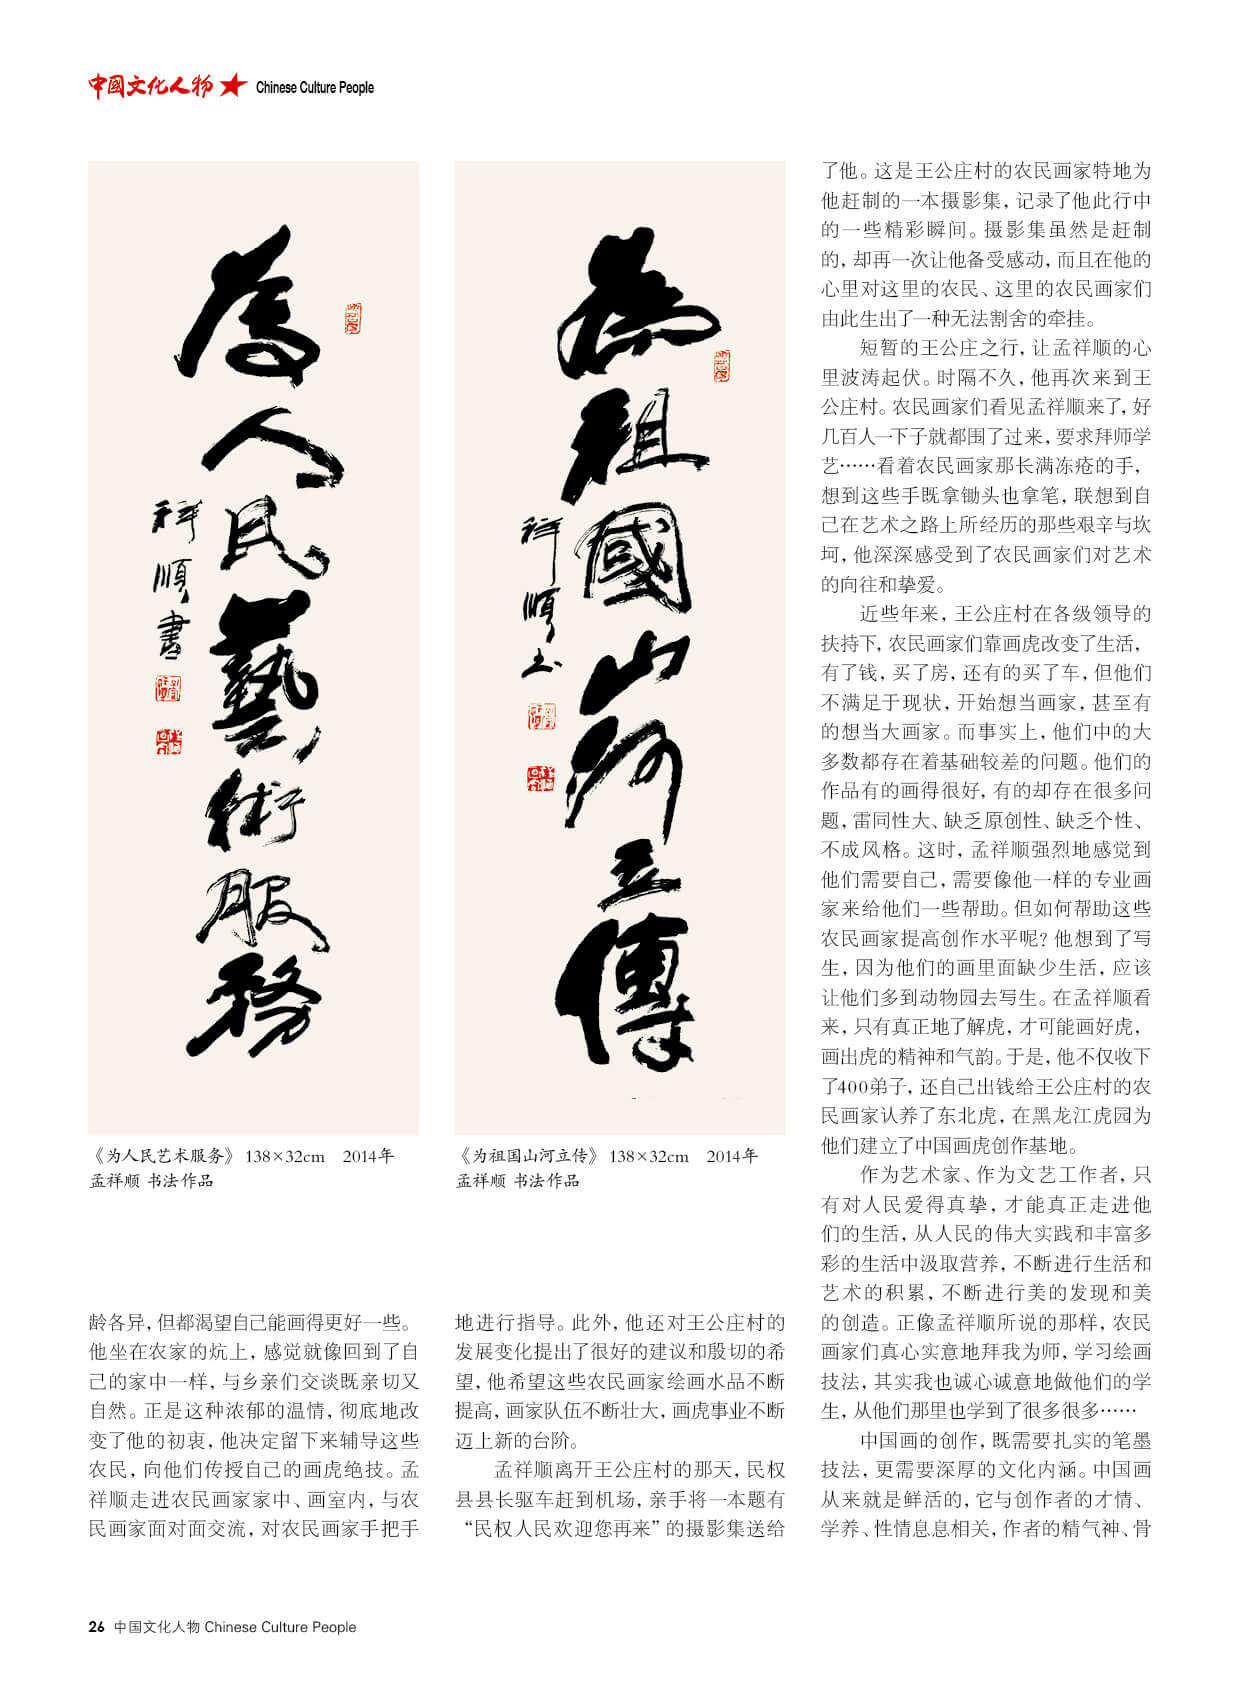 中國文化人物 Chinese Culture People
為人民藝術服務
祥順書
《为人民艺术服务》 138×32cm 2014年
孟祥顺 书法作品
為祖國山河立傳
祥順书
《为祖国山河立传》 138×32cm 2014年
孟祥顺 书法作品
龄各异，但都渴望自己能画得更好一些。
他坐在农家的炕上，感觉就像回到了自
己的家中一样，与乡亲们交谈既亲切又
自然。正是这种浓郁的温情，彻底地改
变了他的初衷，他决定留下来辅导这些
农民，向他们传授自己的画虎绝技。孟
祥顺走进农民画家家中、画室内，与农
民画家面对面交流，对农民画家手把手
地进行指导。此外，他还对王公庄村的
发展变化提出了很好的建议和殷切的希
望，他希望这些农民画家绘画水品不断
提高，画家队伍不断壮大，画虎事业不断
迈上新的台阶。
孟祥顺离开王公庄村的那天，民权
县县长驱车赶到机场，亲手将一本题有
“民权人民欢迎您再来”的摄影集送给
了他。这是王公庄村的农民画家特地为
他赶制的一本摄影集，记录了他此行中
的一些精彩瞬间。摄影集虽然是赶制
的，却再一次让他备受感动，而且在他的
心里对这里的农民、这里的农民画家们
由此生出了一种无法割舍的牵挂。
短暂的王公庄之行，让孟祥顺的心
里波涛起伏。时隔不久，他再次来到王
公庄村。农民画家们看见孟祥顺来了，好
几百人一下子就都围了过来，要求拜师学
艺……看着农民画家那长满冻疮的手，
想到这些手既拿锄头也拿笔，联想到自
己在艺术之路上所经历的那些艰辛与坎
坷，他深深感受到了农民画家们对艺术
的向往和挚爱。
近些年来，王公庄村在各级领导的
扶持下，农民画家们靠画虎改变了生活，
有了钱，买了房，还有的买了车，但他们
不满足于现状，开始想当画家，甚至有
的想当大画家。而事实上，他们中的大
多数都存在着基础较差的问题。他们的
作品有的画得很好，有的却存在很多问
题，雷同性大、缺乏原创性、缺乏个性、
不成风格。这时，孟祥顺强烈地感觉到
他们需要自己，需要像他一样的专业画
家来给他们一些帮助。但如何帮助这些
农民画家提高创作水平呢？他想到了写
生，因为他们的画里面缺少生活，应该
让他们多到动物园去写生。在孟祥顺看
来，只有真正地了解虎，才可能画好虎，
画出虎的精神和气韵。于是，他不仅收下
了400弟子，还自己出钱给王公庄村的农
民画家认养了东北虎，在黑龙江虎园为
他们建立了中国画虎创作基地。
作为艺术家、作为文艺工作者，只
有对人民爱得真挚，才能真正走进他
们的生活，从人民的伟大实践和丰富多
彩的生活中汲取营养，不断进行生活和
艺术的积累，不断进行美的发现和美
的创造。正像孟祥顺所说的那样，农民
画家们真心实意地拜我为师，学习绘画
技法，其实我也诚心诚意地做他们的学
生，从他们那里也学到了很多很多……
中国画的创作，既需要扎实的笔墨
技法，更需要深厚的文化内涵。中国画
从来就是鲜活的，它与创作者的才情、
学养、性情息息相关，作者的精气神、骨
26 中国文化人物 Chinese Culture People